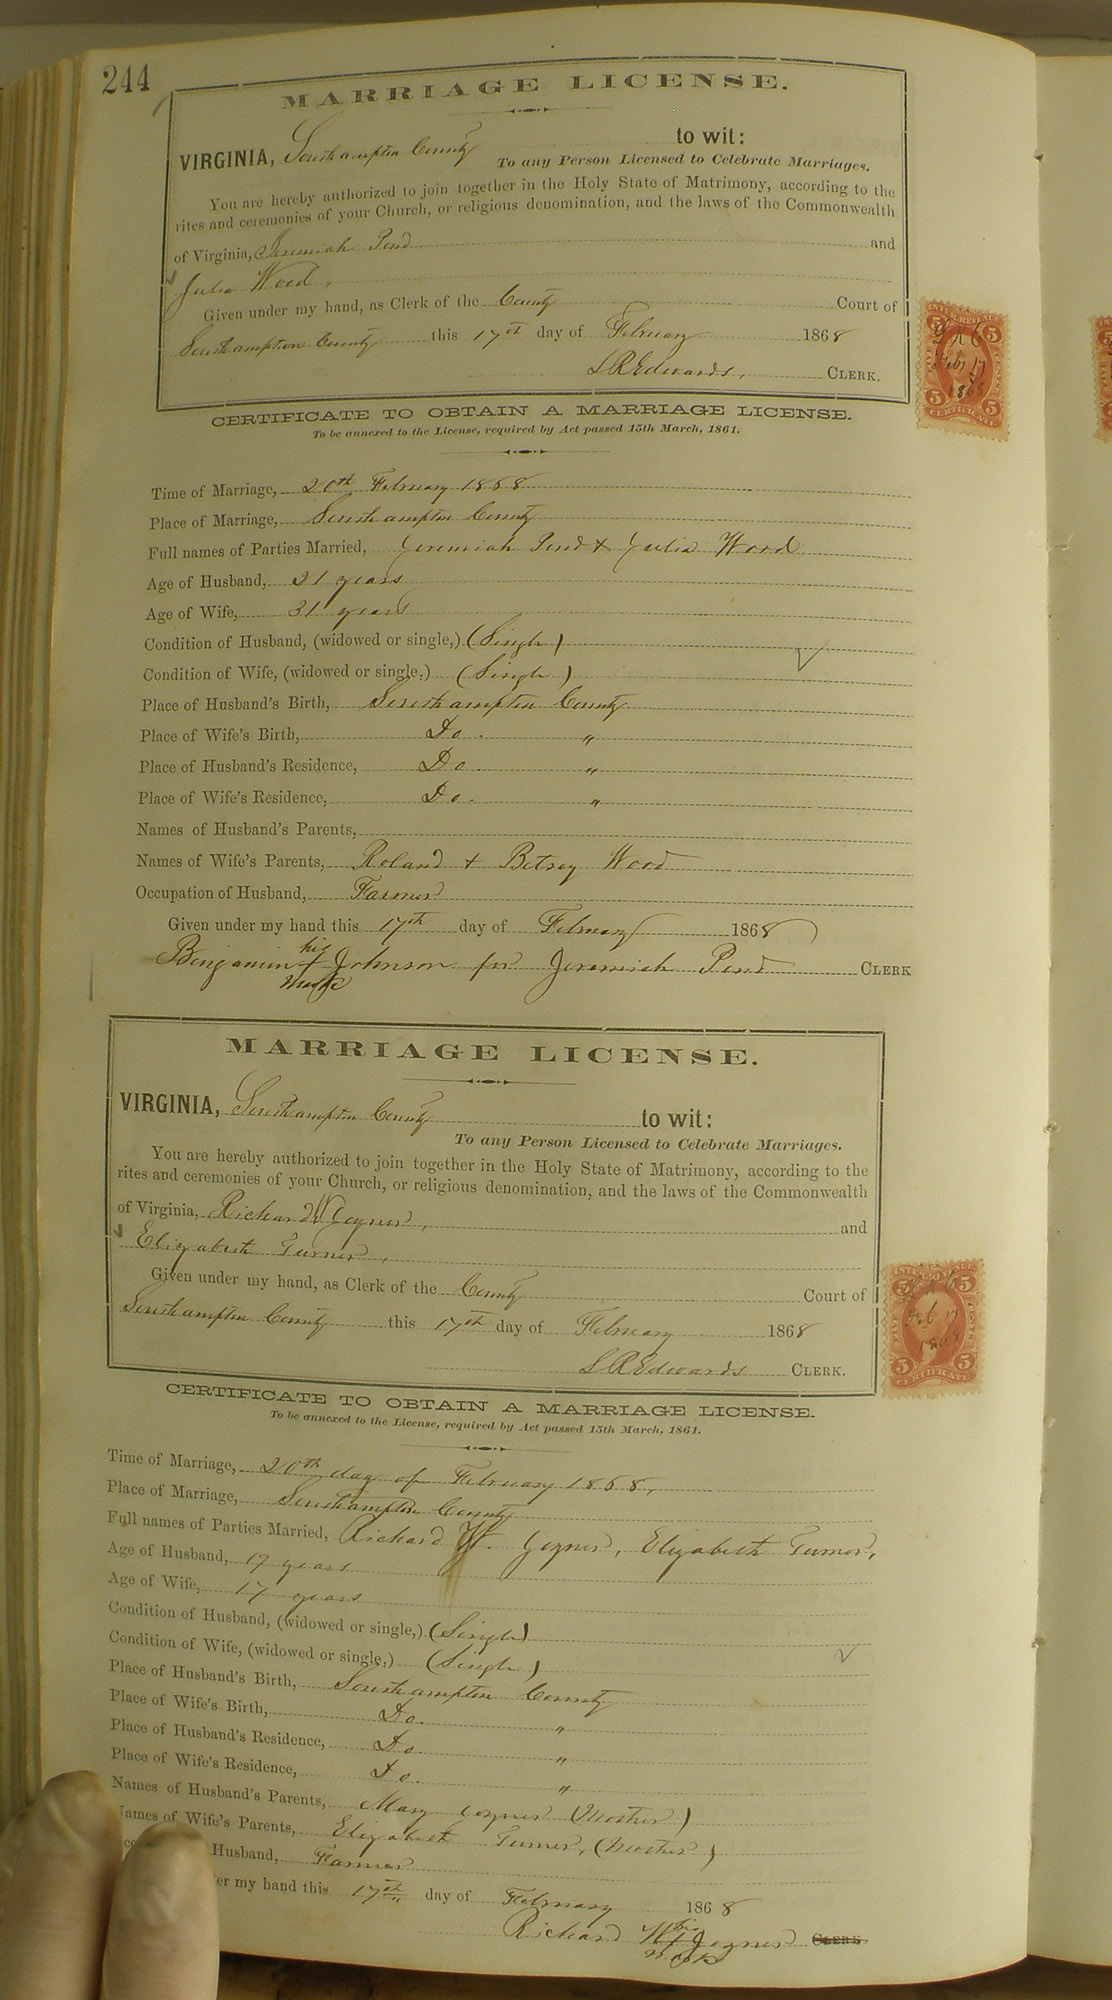 244
MARRIAGE LICENSE.
VIRGINIA, Southampton County to wit:
To any Person Licensed to Celebrate Marriages.
You are hereby authorized to join together in the Holy State of Matrimony, according to the
rites and ceremonies of your Church, or religious denomination, and the laws of the Commonwealth
of Virginia, Jeremiah and
Julia Wood,
Given under my hand, as Clerk of the County Court of
Southampton County this 17th day of February 1868
LREdwards, CLERK.
CERTIFICATE TO OBTAIN A MARRIAGE LICENSE.
To be annexed to the License, required by Act passed 15th March, 1861.
Time of Marriage, 20th February 1868
Place of Marriage, Southampton County
Full names of Parties Married, Jeremiah & Julia Wood
Age of Husband, years
Age of Wife, 31 years
Condition of Husband, (widowed or single,) (Single)
Condition of Wife, (widowed or single,) (Single)
Place of Husband's Birth, Southampton County
Place of Wife's Birth, Do. "
Place of Husband's Residence, Do. "
Place of Wife's Residence, Do. "
Names of Husband's Parents,
Names of Wife's Parents, Roland + Betsey Wood
Occupation of Husband, Farmer
Given under my hand this 17th day of February 1868
his
Benjamin + Johnson for Jeremiah CLERK
mark
INTER. REVENUE
5 5
Feby 17
1868
5 5
CERTIFICATE
MARRIAGE LICENSE.
VIRGINIA, Southampton County to wit:
To any Person Licensed to Celebrate Marriages.
You are hereby authorized to join together in the Holy State of Matrimony, according to the
rites and ceremonies of your Church, or religious denomination, and the laws of the Commonwealth
of Virginia, Richard W Joyner, and
Elizabeth Turner,
Given under my hand, as Clerk of the County Court of
Southampton County this 17th day of February 1868
LREdwards CLERK.
INTER. REVENUE
5 5
Feb 17
1868
5 5
CERTIFICATE
CERTIFICATE TO OBTAIN A MARRIAGE LICENSE.
To be annexed to the License, required by Act passed 15th March, 1861.
Time of Marriage, 20th day of February 1868,
Place of Marriage, Southampton County
Full names of Parties Married, Richard W. Joyner, Elizabeth Turner,
Age of Husband, years
Age of Wife, 17 years
Condition of Husband, (widowed or single,) (Single)
Condition of Wife, (widowed or single,) (Single)
Place of Husband's Birth, Southampton County
Place of Wife's Birth, Do. "
Place of Husband's Residence, Do. "
Place of Wife's Residence, Do. "
Names of Husband's Parents, Mary Joyner (Mother)
Names of Wife's Parents, Elizabeth Turner, (Mother)
Husband, Farmer
er my hand this 17th day of February 1868
his
Richard W + Joyner CLERK
mark